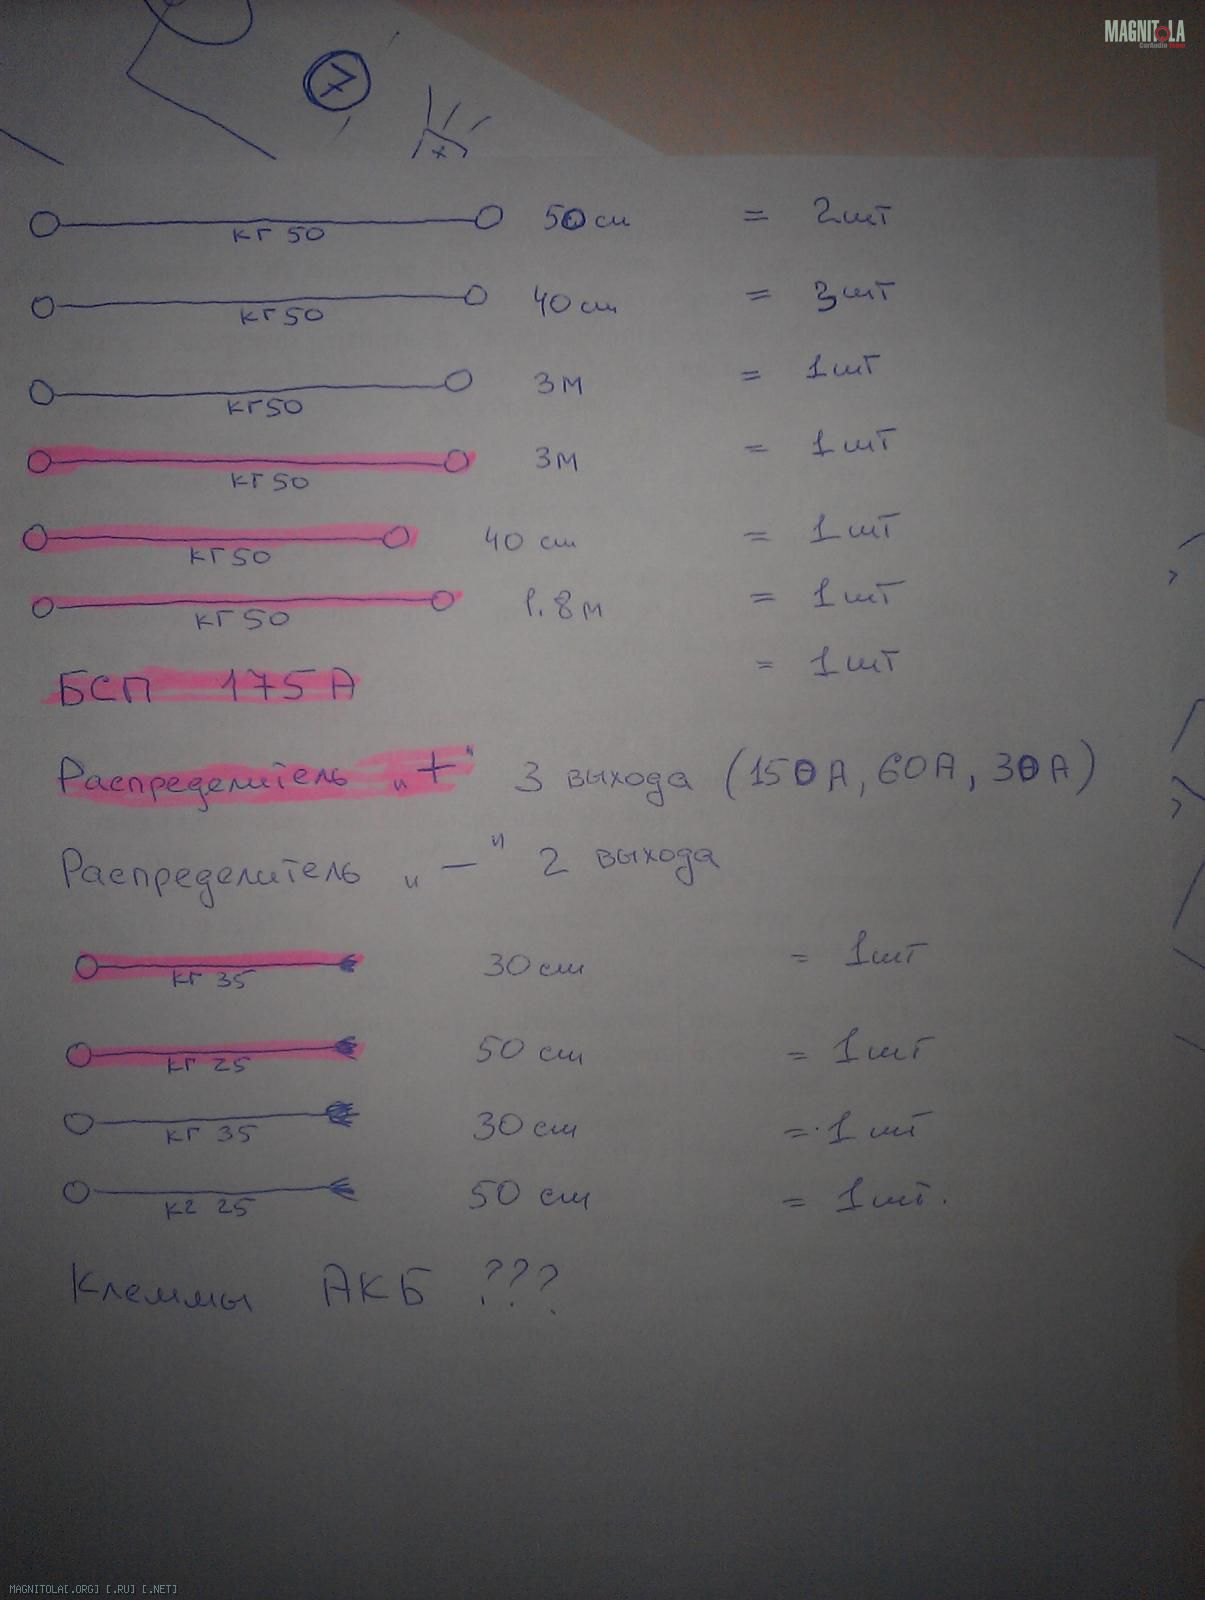 MAGNITOLA
CarAudio Team
7
+
КГ 50 50 см = 2шт
КГ50 40 см = 3шт
КГ50 3м = 1шт
КГ50 3м = 1шт
КГ50 40 см = 1шт
КГ 50 1.8м = 1шт
БСП 175 А = 1шт
Распределитель „+" 3 выхода (150А, 60А, 30А)
Распределитель „—" 2 выхода
КГ 35 30 см = 1шт
КГ 25 50 см = 1шт
КГ 35 30 см = 1 шт
Кг 25 50 см = 1шт.
Клеммы АКБ ???
MAGNITOLA[.ORG] [.RU] [.NET]